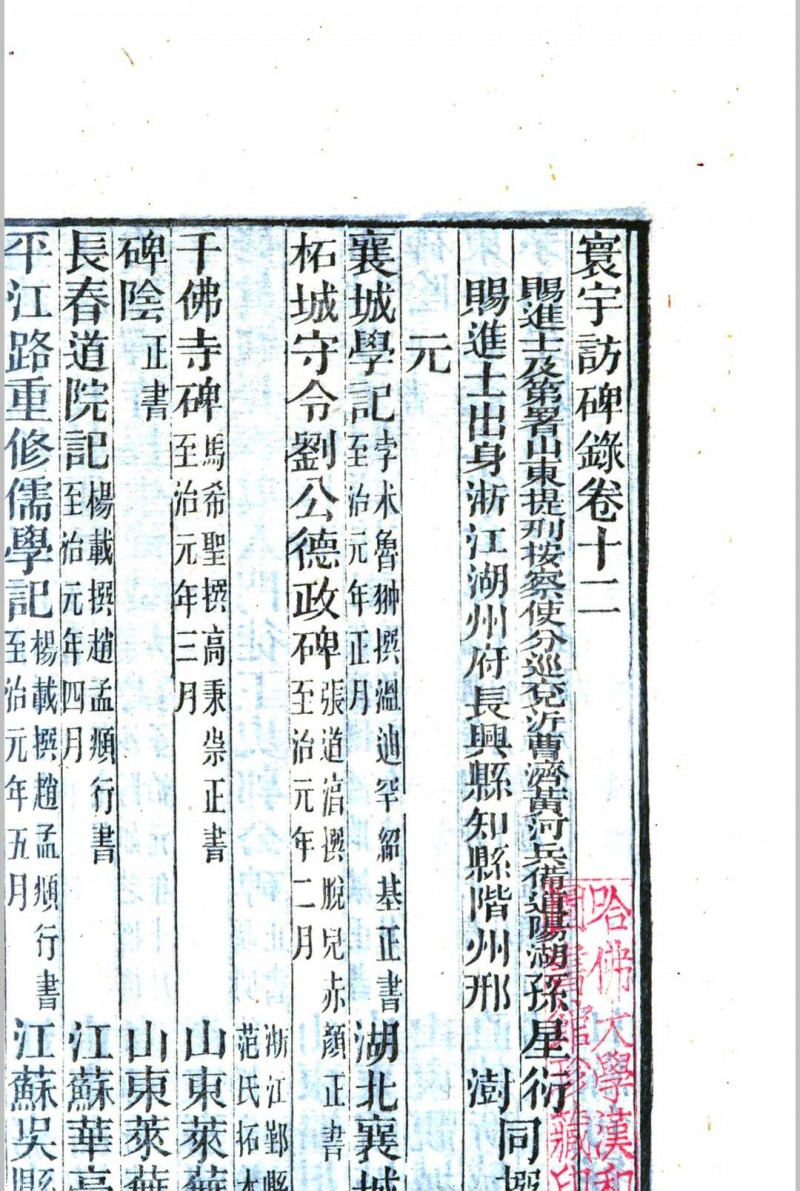 寰宇訪碑錄卷十二
賜進士及第署山東提刑按察使分巡兗沂曹濟黃河兵備道陽湖孫星衍
賜進士出身浙江湖州府長興縣知縣階州邢 澍
同
元
襄城學記
孛朮魯翀撰溫迪罕紹基正書
至治元年正月
湖北襄城
柘城守令劉公德政碑
張道㴠撰脫兒赤顏正書
至治元年二月
浙江鄞縣
范氏拓本
千佛寺碑
馬希聖撰高秉崇正書
至治元年三月
山東萊蕪
碑陰
正書
山東萊蕪
長春道院記
楊載撰趙孟頫行書
至治元年四月
江蘇華亭
平江路重修儒學記
楊載撰趙孟頫行書
至治元年五月
江蘇吳縣
哈佛大學漢和
圖書館珍藏印